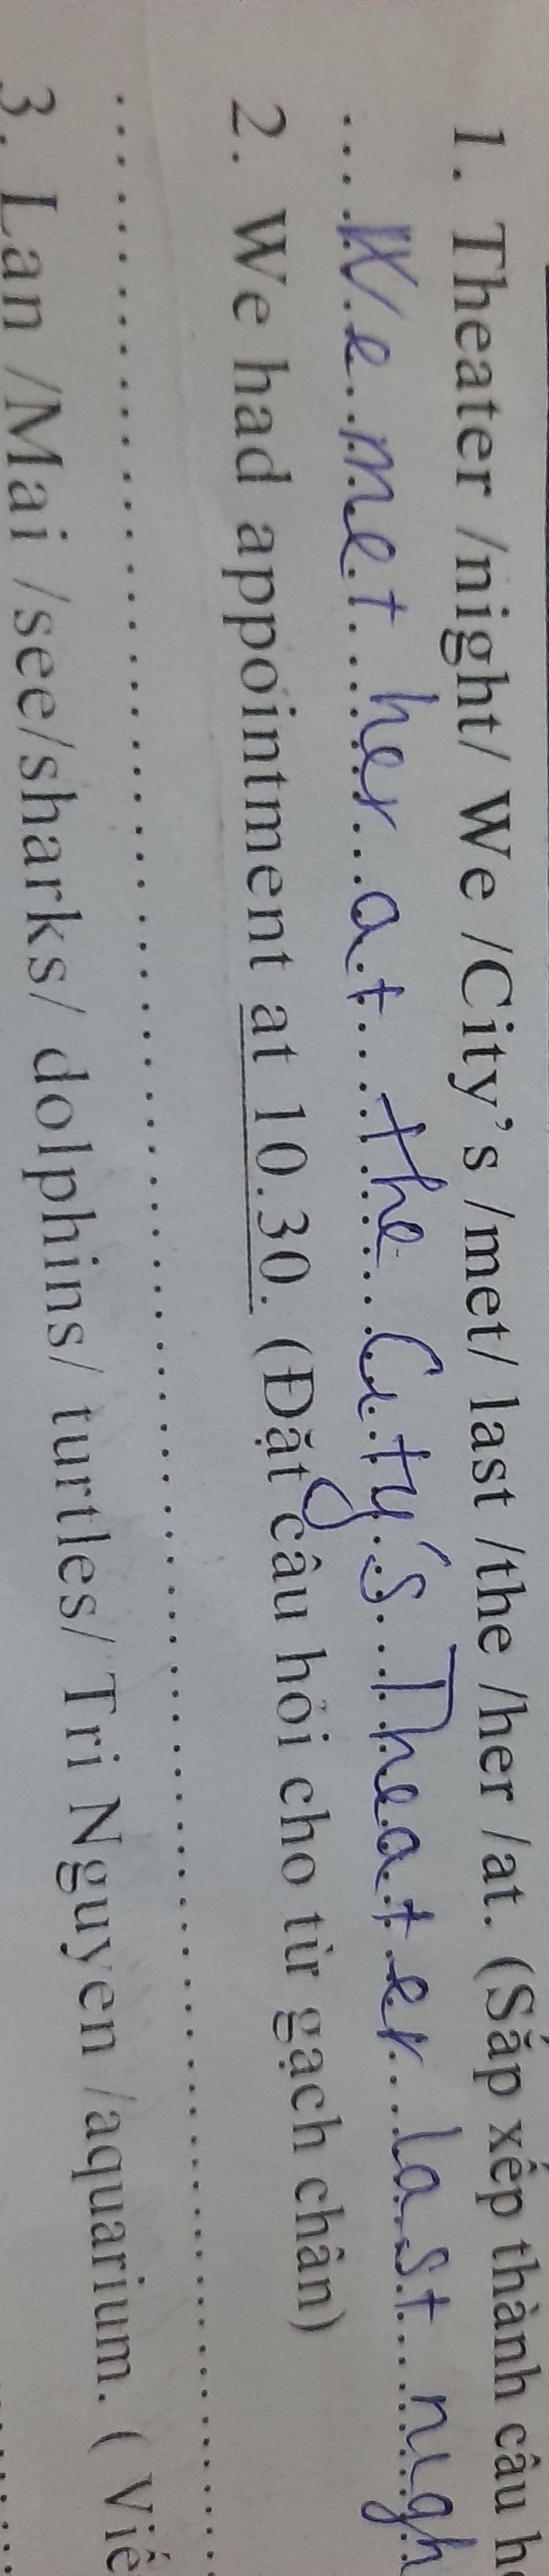 1. Theater /night/ We /City's /met/ last /the /her /at. (Sắp xếp thành câu h
....We met her at the City's Theater last nigh
2. We had appointment at 10.30. (Đặt câu hỏi cho từ gạch chân)
3. Lan /Mai /see/sharks/ dolphins/ turtles/ Tri Nguyen /aquarium. ( Viế